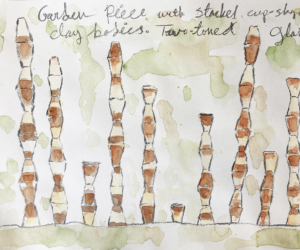 Garden Piece with stacked cup-shap
clay bodies. Two-toned glaz